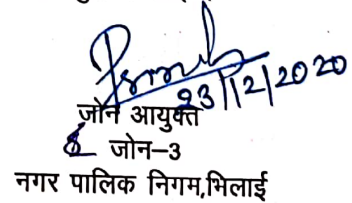 23/12/2020
जोन आयुक्त
जोन-3
नगर पालिक निगम,भिलाई